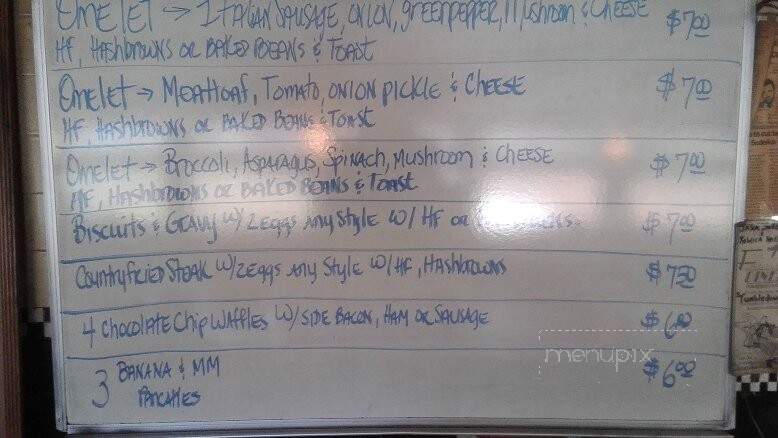 Omelet → Italian Sausage, onion, greenpepper, Mushroom & Cheese $7.00
HF, Hashbrowns or Baked Beans & Toast
Omelet → Meatloaf, Tomato, onion pickle & Cheese $7.00
HF, Hashbrowns or Baked Beans & Toast
Omelet → Broccoli, Asparagus, Spinach, Mushroom & Cheese $7.00
HF, Hashbrowns or Baked Beans & Toast
Biscuits & Gravy w/ 2 eggs any Style w/ HF or $7.00
Countryfried Steak w/ 2 eggs any Style w/ HF, Hashbrowns $7.50
4 Chocolate Chip Waffles w/ Side Bacon, Ham or Sausage $6.00
3 Banana & MM $6.00
Pancakes
menupix